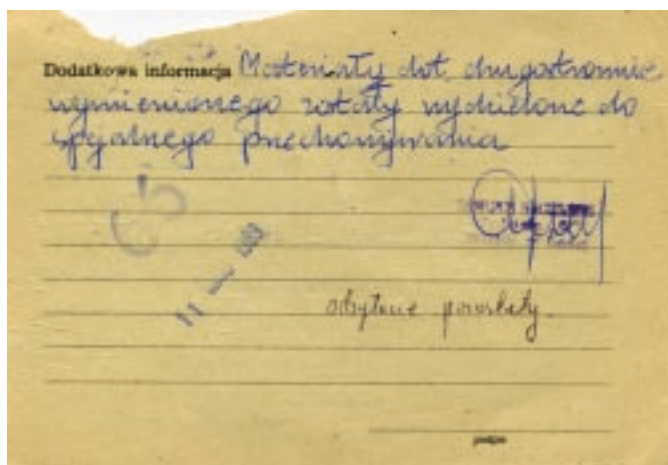 Dodatkowa informacja Materiały dot. drugostronnie
wymienionego zostały wydzielone do
specjalnego przechowywania
podpis